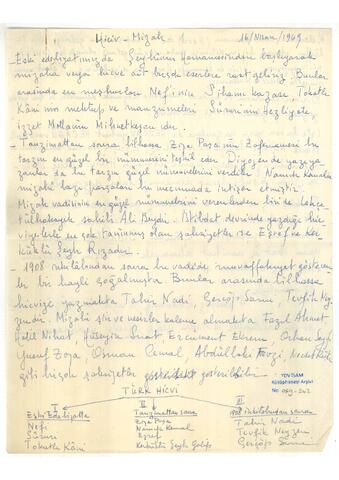 Hiciv - Mizah 1 16/Nisan/1969
- Eski edebiyatımızda Şeyhinin Harnamesinden başlıyarak
mizaha veya hicve ait bizde eserlere rast geliriz. Bunlar
arasında en meşhurları Nef'inin Sihamı kazası Tokatlı
Kâninin mektup ve manzumeleri Sürurinin Hezliyatı,
izzet Mollanın Mihnetkeşanıdır.
- Tanzimattan sonra bilhassa Ziya Paşanın Zafernamesi bu
tarzın en güzel bir nümunesini teşkil eder. Diyojende yazı yazanlar da bu tarzın güzel nümunelerini verdiler. Namık Kemalin
mizahi bazı parçaları bu mecmuada intişar etmiştir.
Mizah vadisinin en güzel nümunelerini verenlerden biri de Lehçe-
tülhakayık sahibi Ali Beydir. İstibdat devrinde yazdığı hic
viyelerle en çok tanınmış olan şahsiyetler ise Eşref ve Ker-
küklü Şeyh Rızadır.
- 1908 inkılâbından sonra bu vadide muvaffakıyet gösteren-
ler bir hayli çoğalmıştır Bunlar arasında bilhassa
hicviye yazmakta Tahir Nadi, Tevfik Ney-
zendir. Mizahi şiir ve nesirler kaleme almakta Fazıl Ahmet
Halil Nihat, Hüseyin Suat, Ercüment Ekrem, Orhan Seyfi
Yusuf Ziya, Osman Cemal, Abdülbaki Fevzi,
gibi birçok şahsiyetler gösterilebilir
TÜRK HİCVİ
I
Eski Edebiyatta
Nefi
Sürurî
Tokatlı Kâni
II
Tanzimattan sonra
Ziya Paşa
Namık Kemal
Eşref
Kerküklü Şeyh
III
1908 inkılabından sonra
Tahir Nadi
Tevfik Neyzen
TDV İSAM
Kütüphanesi Arşivi
No